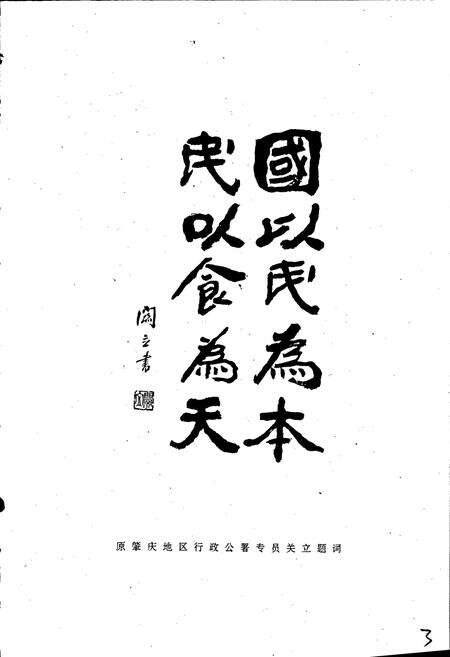 國以民為本
民以食為天
關立書
原肇庆地区行政公署专员关立题词
3